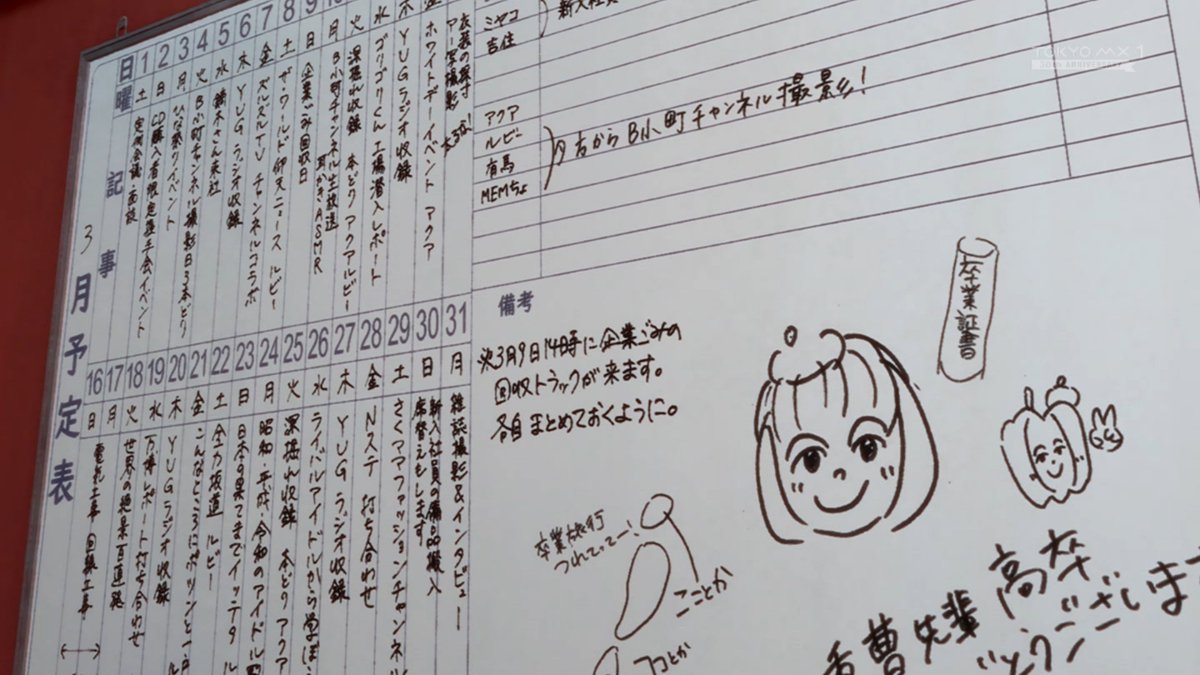 TOKYO MX 1
30th ANNIVERSARY
3月予定表
日曜 記事
1 土 定例会議・面談
2 日 CD購入者限定握手会イベント
3 月 ひな祭りイベント
4 火 B小町チャンネル撮影日3本どり
5 水 鏑木さん来社
6 木 YUGラジオ収録
7 金 ズルズルTVチャンネルコラボ
8 土 ザ・ワールド仰天ニュース ルビー
9 日 企業ごみ回収日
B小町チャンネル生放送 耳かきASMR
火 深掘れ収録 本どり アクアルビー
水 ゴリゴリくん工場潜入レポート
木 YUGラジオ収録
ホワイトデーイベント アクア
衣装の採寸
アー写撮影
16 日 電気工事・回線工事
17 月 世界の絶景百道路
18 火 万博レポート打ち合わせ
19 水 YUGラジオ収録
20 木 こんなところにポツンと一
21 金 全力坂道 ルビー
22 土 日本の果てまでイッテタ ル
23 日 昭和・平成・令和のアイドル
24 月 深掘れ収録 本どり アクア
25 火 ライバルアイドルから学ぼ
26 水 YUGラジオ収録
27 木 Nステ 打ち合わせ
28 金 さくママファッションチャンネル
29 土 新入社員の備品搬入
席替えもします
30 日 雑誌撮影&インタビュー
31 月
ミヤコ
吉住
新入社員
アクア
ルビー
有馬
MEMちょ
夕方からB小町チャンネル撮影!
備考
※3月9日14時に企業ごみの
回収トラックが来ます。
各自まとめておくように。
卒業証書
卒業旅行
つれてってー!
こことか
ココとか
先輩 高卒
ございま